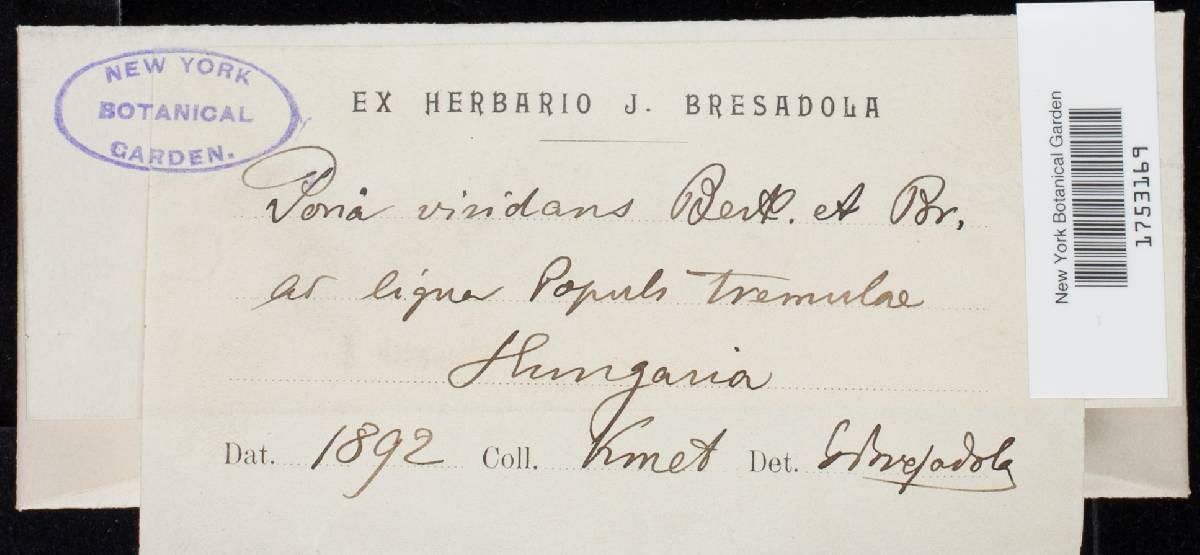 NEW YORK
BOTANICAL
GARDEN.
EX HERBARIO J. BRESADOLA
Poria viridans Berk. et Br,
ad ligna Populi tremulae
Hungaria
Dat. 1892 Coll. Kmet Det. GBresadola
New York Botanical Garden
1753169